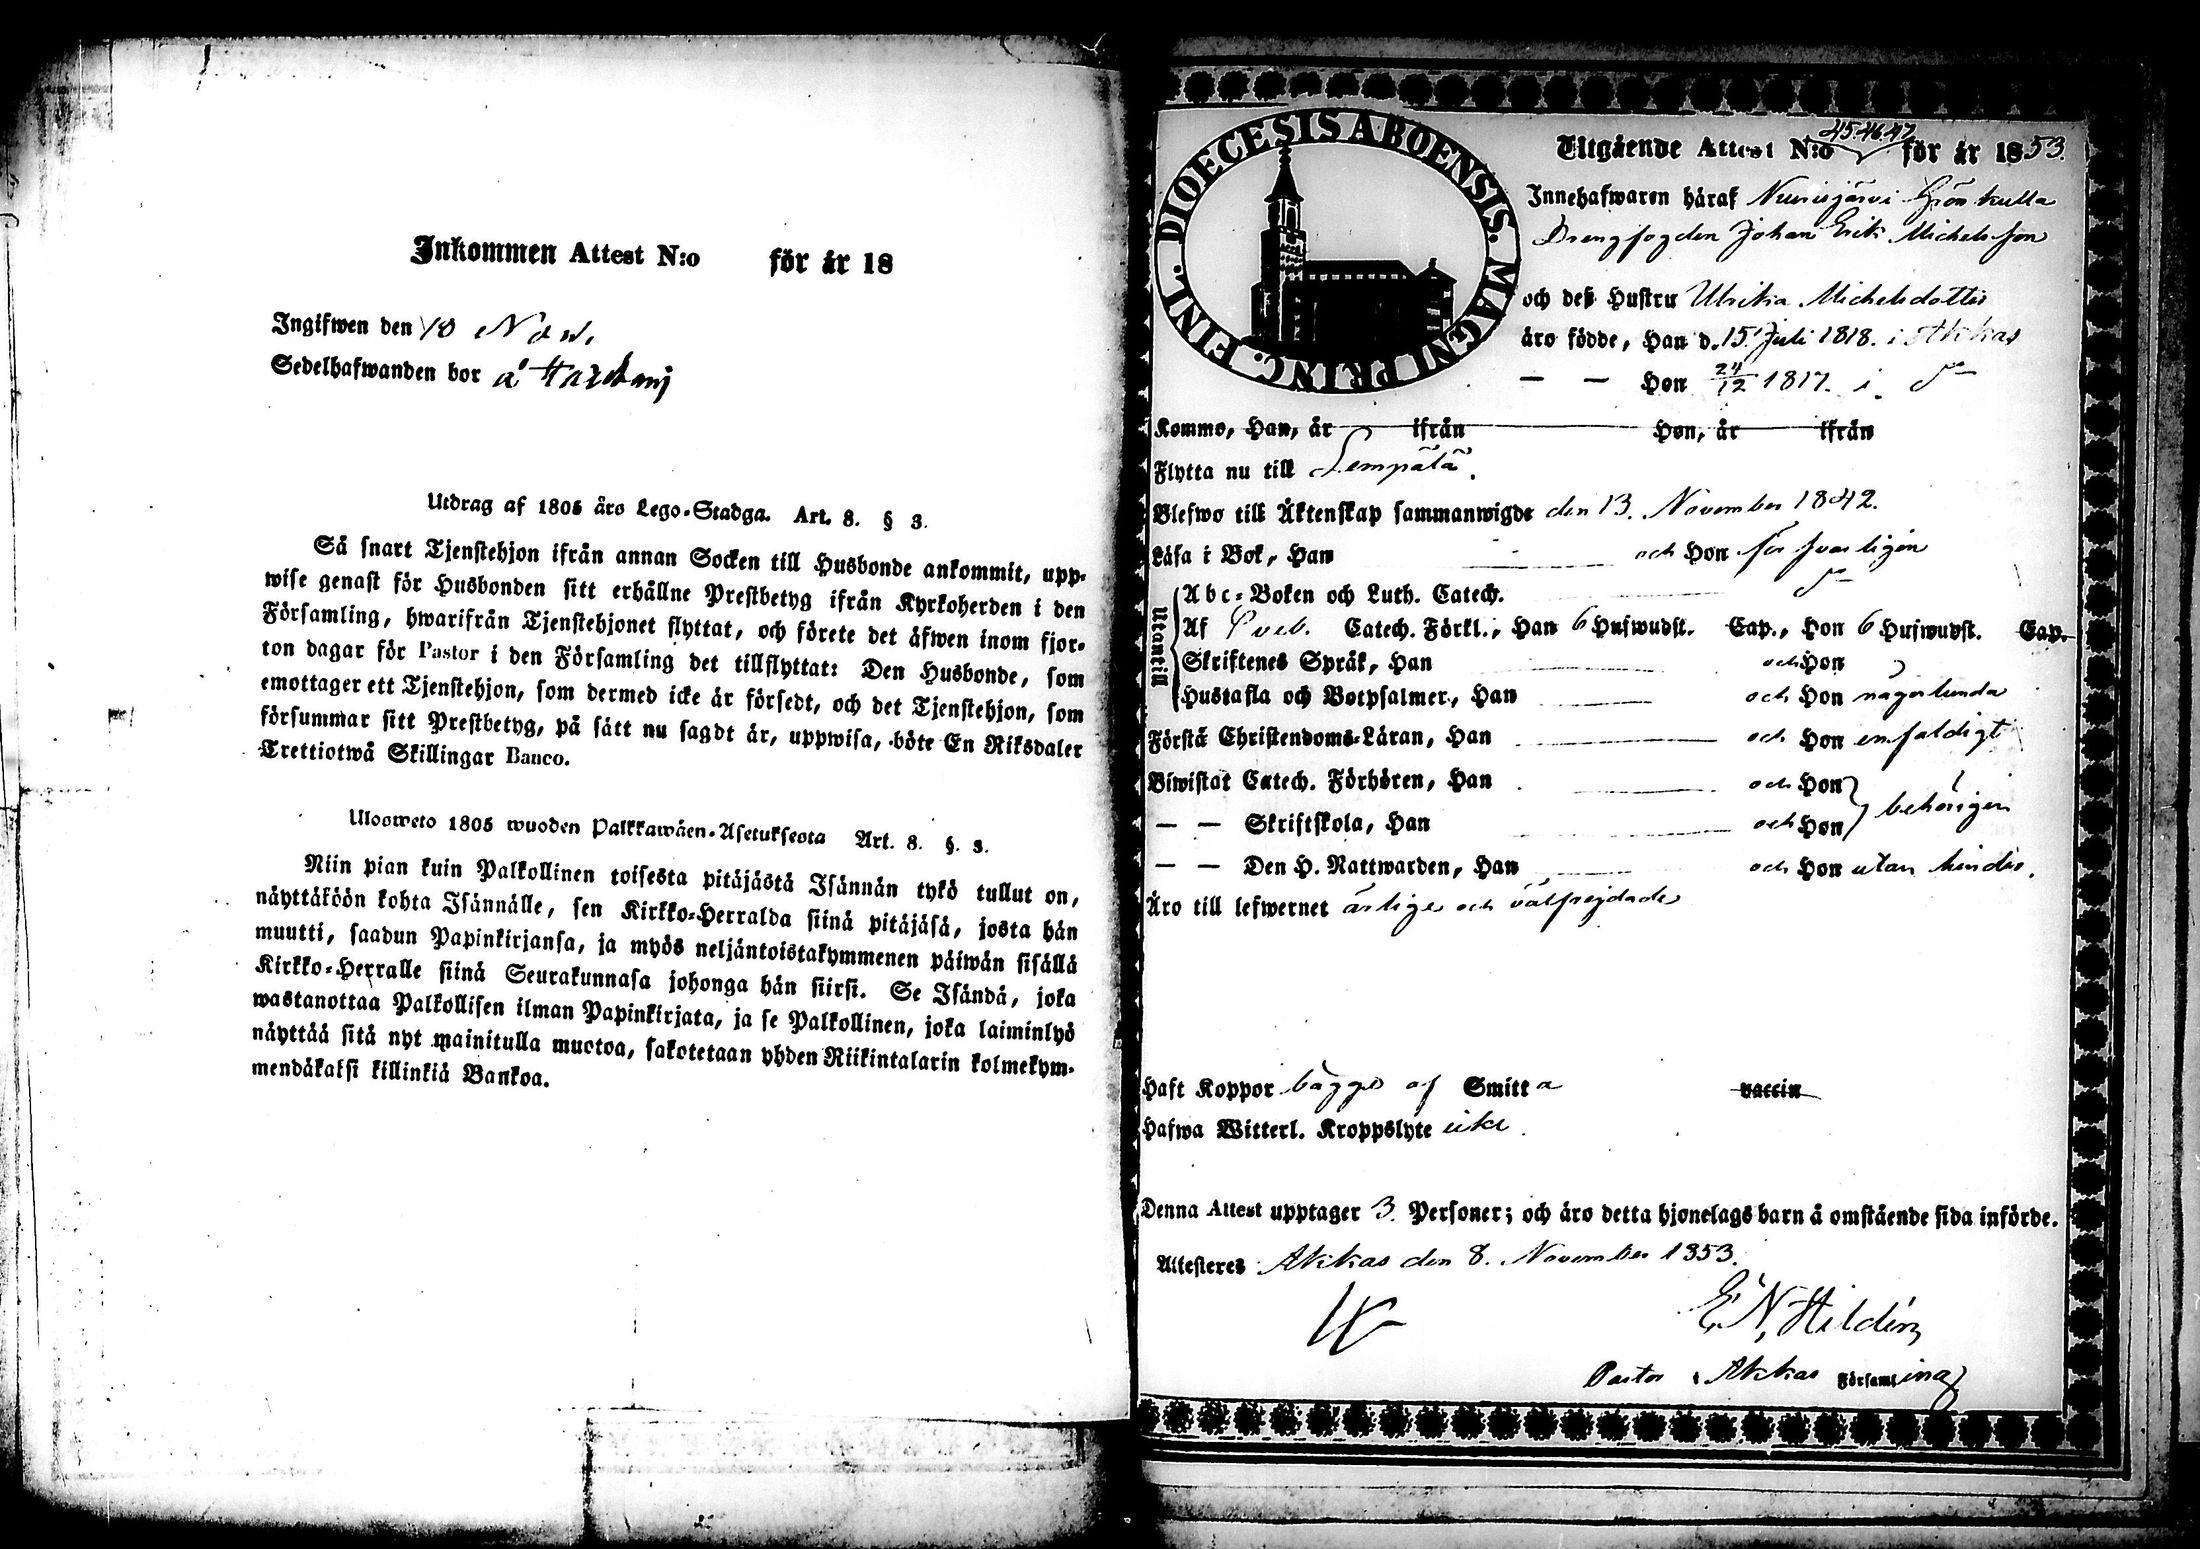 Inkommen Attest N:o för år 18
Ingifwen den 18 Nov.
Sedelhafwanden bor å
Utdrag af 1805 års Lego-Stadga. Art. 8. § 3.
Så snart Tjenstehjon ifrån annan Socken till Husbonde ankommit, upp-
wise genast för Husbonden sitt erhållne Prestbetyg ifrån Kyrkoherden i den
Församling, hwarifrån Tjenstehjonet flyttat, och förete det äfwen inom fjor-
ton dagar för Pastor i den Församling det tillflyttat: Den Husbonde, som
emottager ett Tjenstehjon, som dermed icke är försedt, och det Tjenstehjon, som
försummar sitt Prestbetyg, på sätt nu sagdt är, uppwisa, böte En Riksdaler
Trettiotwå Skillingar Banco.
Ulosweto 1805 wuoden Palkkawäen-Asetuksesta Art. 8. §. 3.
Niin pian kuin Palkollinen toisesta pitäjästä Isännän tykö tullut on,
näyttäköön kohta Isännälle, sen Kirkko-Herralda siinä pitäjäsä, josta hän
muutti, saadun Papinkirjansa, ja myös neljäntoistakymmenen päiwän sisällä
Kirkko-Herralle siinä Seurakunnasa johonga hän siirsi. Se Isändä, joka
wastanottaa Palkollisen ilman Papinkirjata, ja se Palkollinen, joka laiminlyö
näyttää sitä nyt mainitulla muotoa, sakotetaan yhden Riikintalarin kolmekym-
mendäkaksi killinkiä Bankoa.
DIOECESIS ABOENSIS. MAGNI PRINC. FINL.
Utgående Attest N:o 45.46.47 för år 1853.
Innehafwaren häraf Nurisjärvi Grönkulla
Drengfogden Johan Erik Michelsson
och deß Hustru Ulrika Michelsdotter
äro födde, Han d. 15 Juli 1818. i Akkas
— — Hon 24/12 1817. i. d:o
Kommo, Han, år ifrån Hon, år ifrån
Flytta nu till Lempälä.
Blefwo till Äktenskap sammanwigde den 13. November 1842.
Läsa i Bok, Han och Hon försvarligen
Utantill
Abc-Boken och Luth. Catech. d:o
Af Sveb. Catech. Förkl., Han 6 Hufwudst. Cap., Hon 6 Hufwudst. Cap.
Skriftenes Språk, Han och Hon
Hustafla och Botpsalmer, Han och Hon någorlunda
Förstå Christendoms-Läran, Han och Hon enfaldigt
Biwistat Catech. Förhören, Han och Hon
— — Skriftskola, Han och Hon behörigen
— — Den H. Nattwarden, Han och Hon utan hinder.
Äro till lefwernet ärlige och välfrejdade
Haft Koppor bägge af Smitta vaccin
Hafwa Witterl. Kroppslyte icke.
Denna Attest upptager 3. Personer; och äro detta hjonelags barn å omstående sida införde.
Attesteres Akkas den 8. November 1853.
E. N. Hildén
Pastor i Akkas Församling